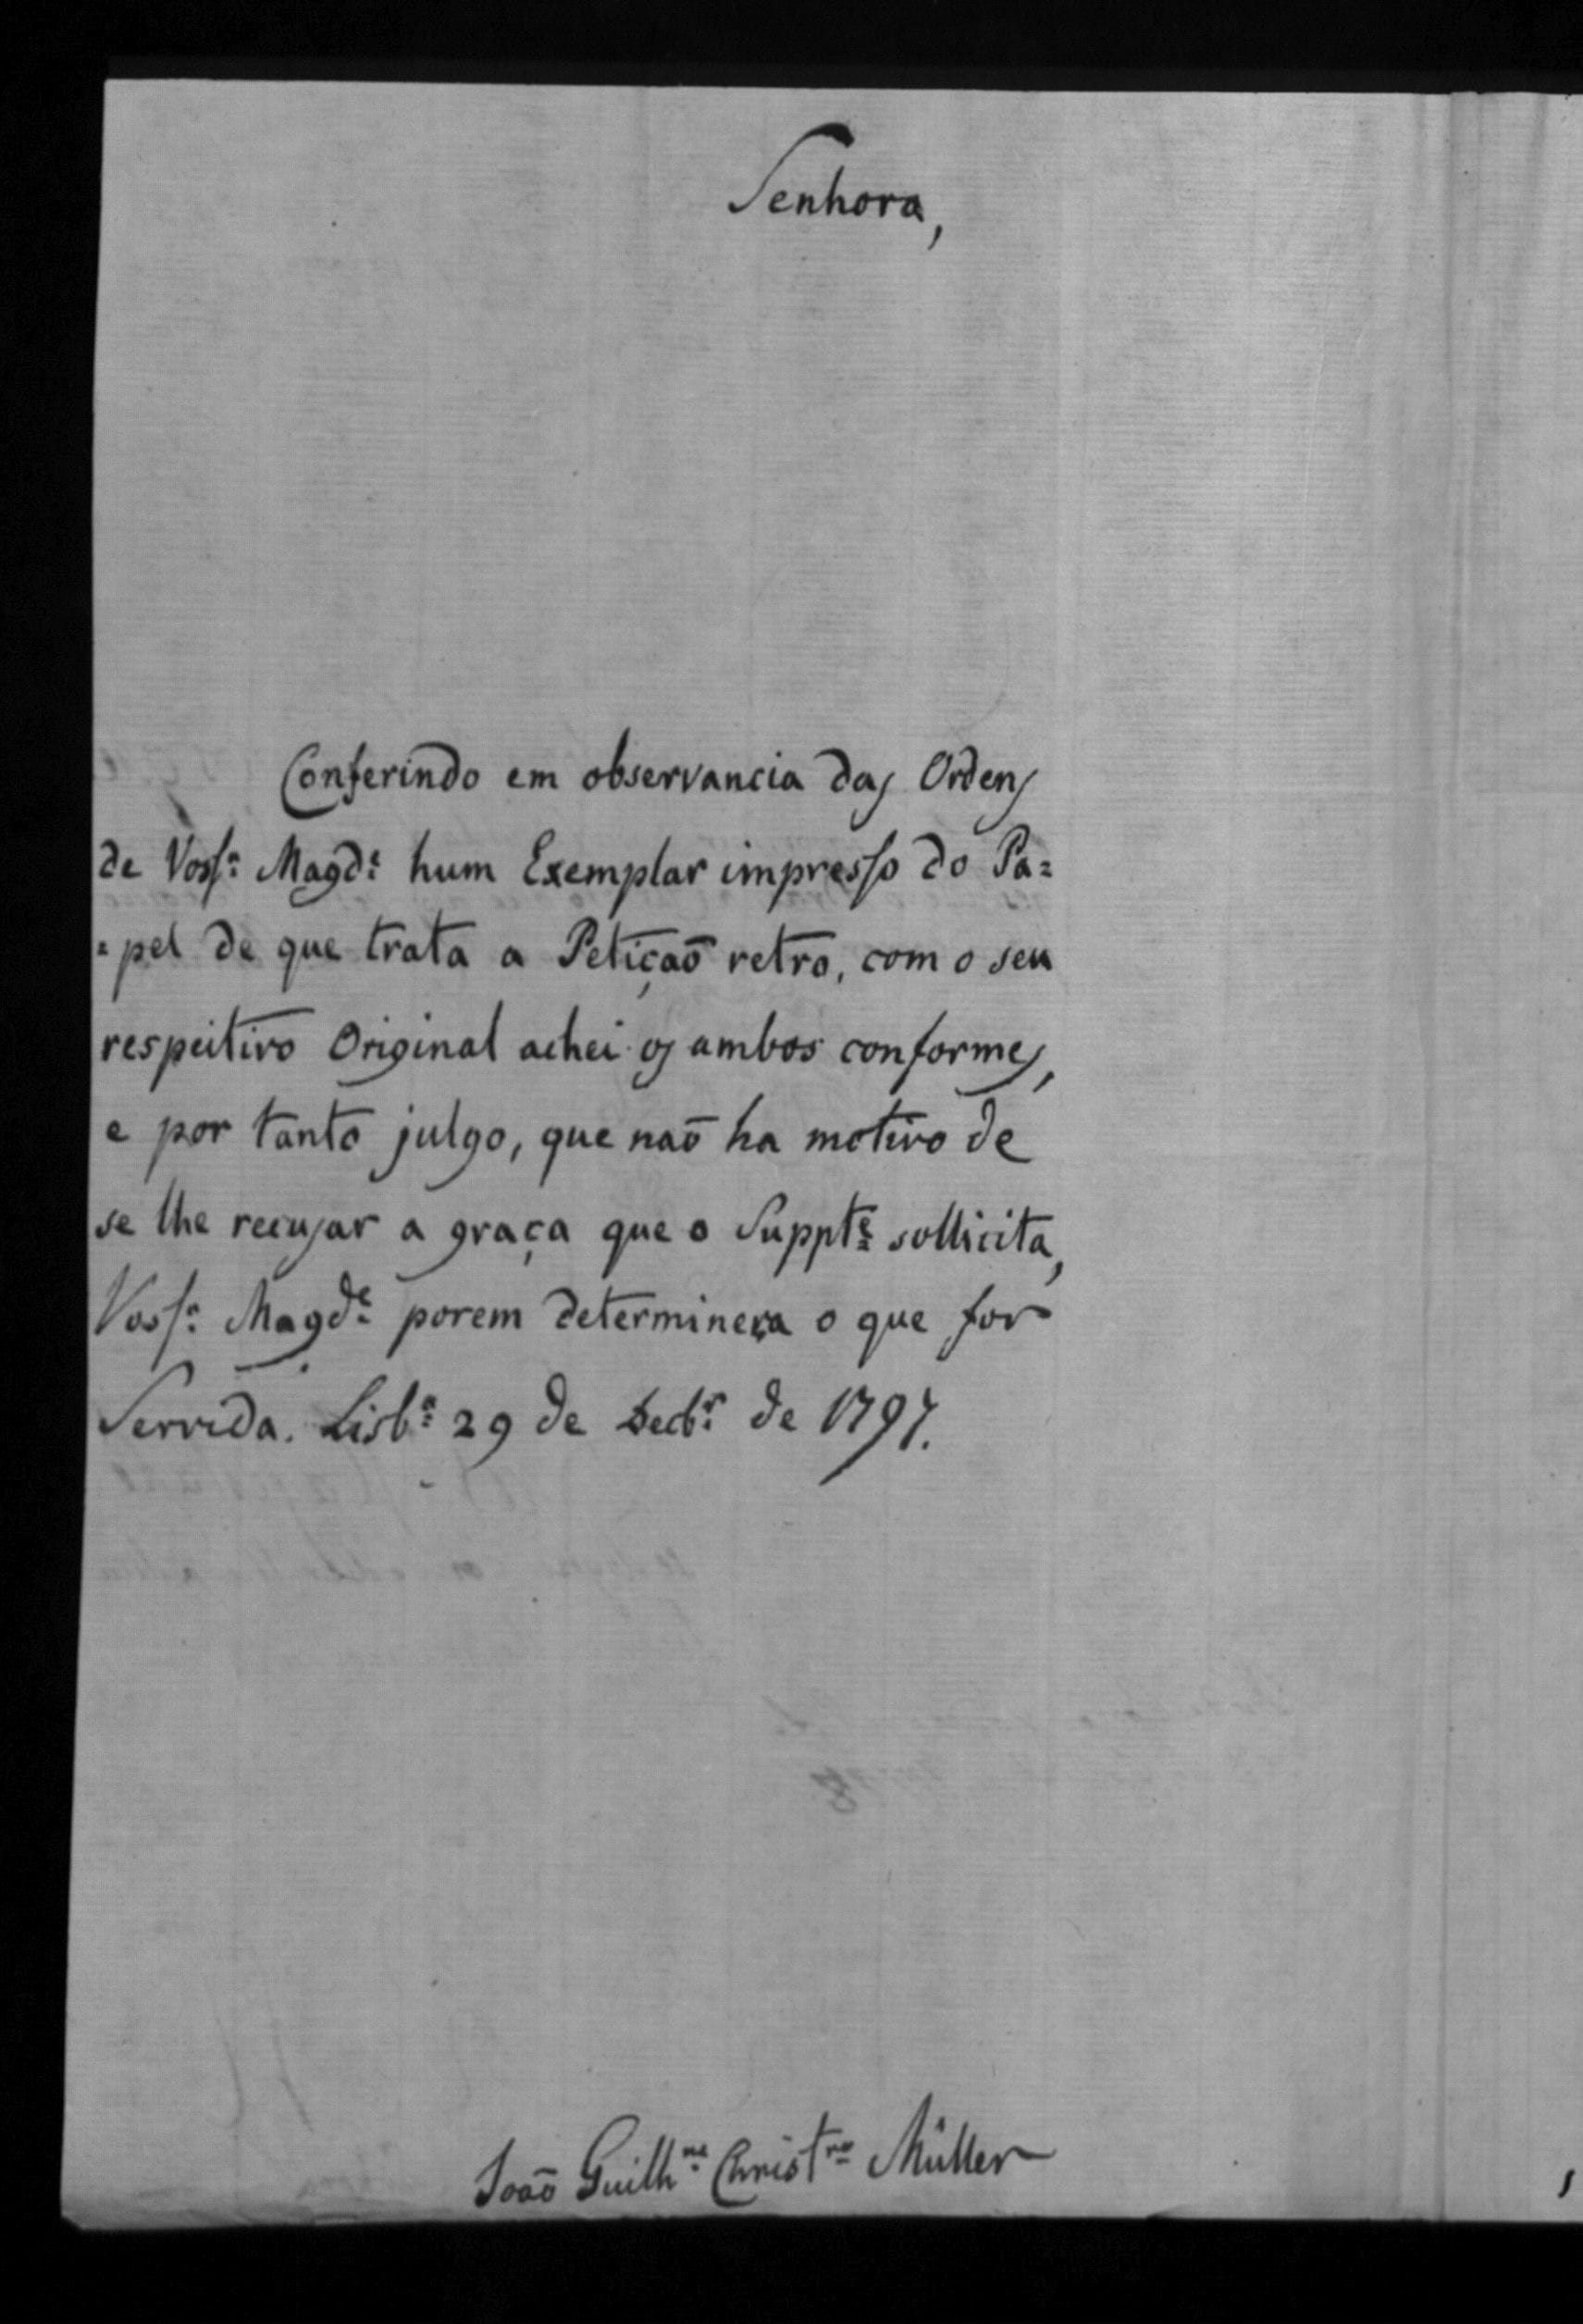 Senhora,
Conferindo em observancia das Ordens
de Voss.ª Magd.e hum Exemplar impresso do Pa=
=pel de que trata a Petiçaõ retro, com o seu
respeitivo Original achei os ambos conformes,
e por tanto julgo, que naõ ha motivo de
se lhe recusar a graça que o Suppt.e sollicita,
Voss.ª Magd.e porem determinera o que for
Servida. Lisb.ª 29 de Decb.r de 1797.
Joaõ Guilh.me Christ.no Müller